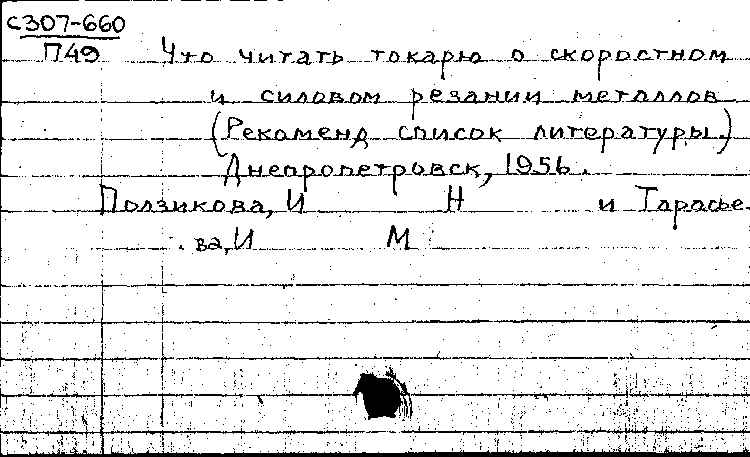 С307-660
П49 Что читать токарю о скоростном
и силовом резании металлов
(Рекоменд список литературы.)
Днепропетровск, 1956.
Ползикова, И Н и Тарасье
ва, И М